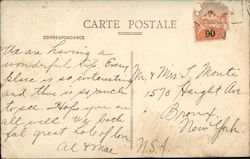 CARTE POSTALE
CORRESPONDANCE
90
We are having a
wonderful trip. Every
place is so interesting
and there is so much
to see. Hope you are
all well. We both
feel great. Lots of love
Al & Mae
Mr. & Mrs T. Monti
1570 Haight Ave.
Bronx
New York
N.S.A.